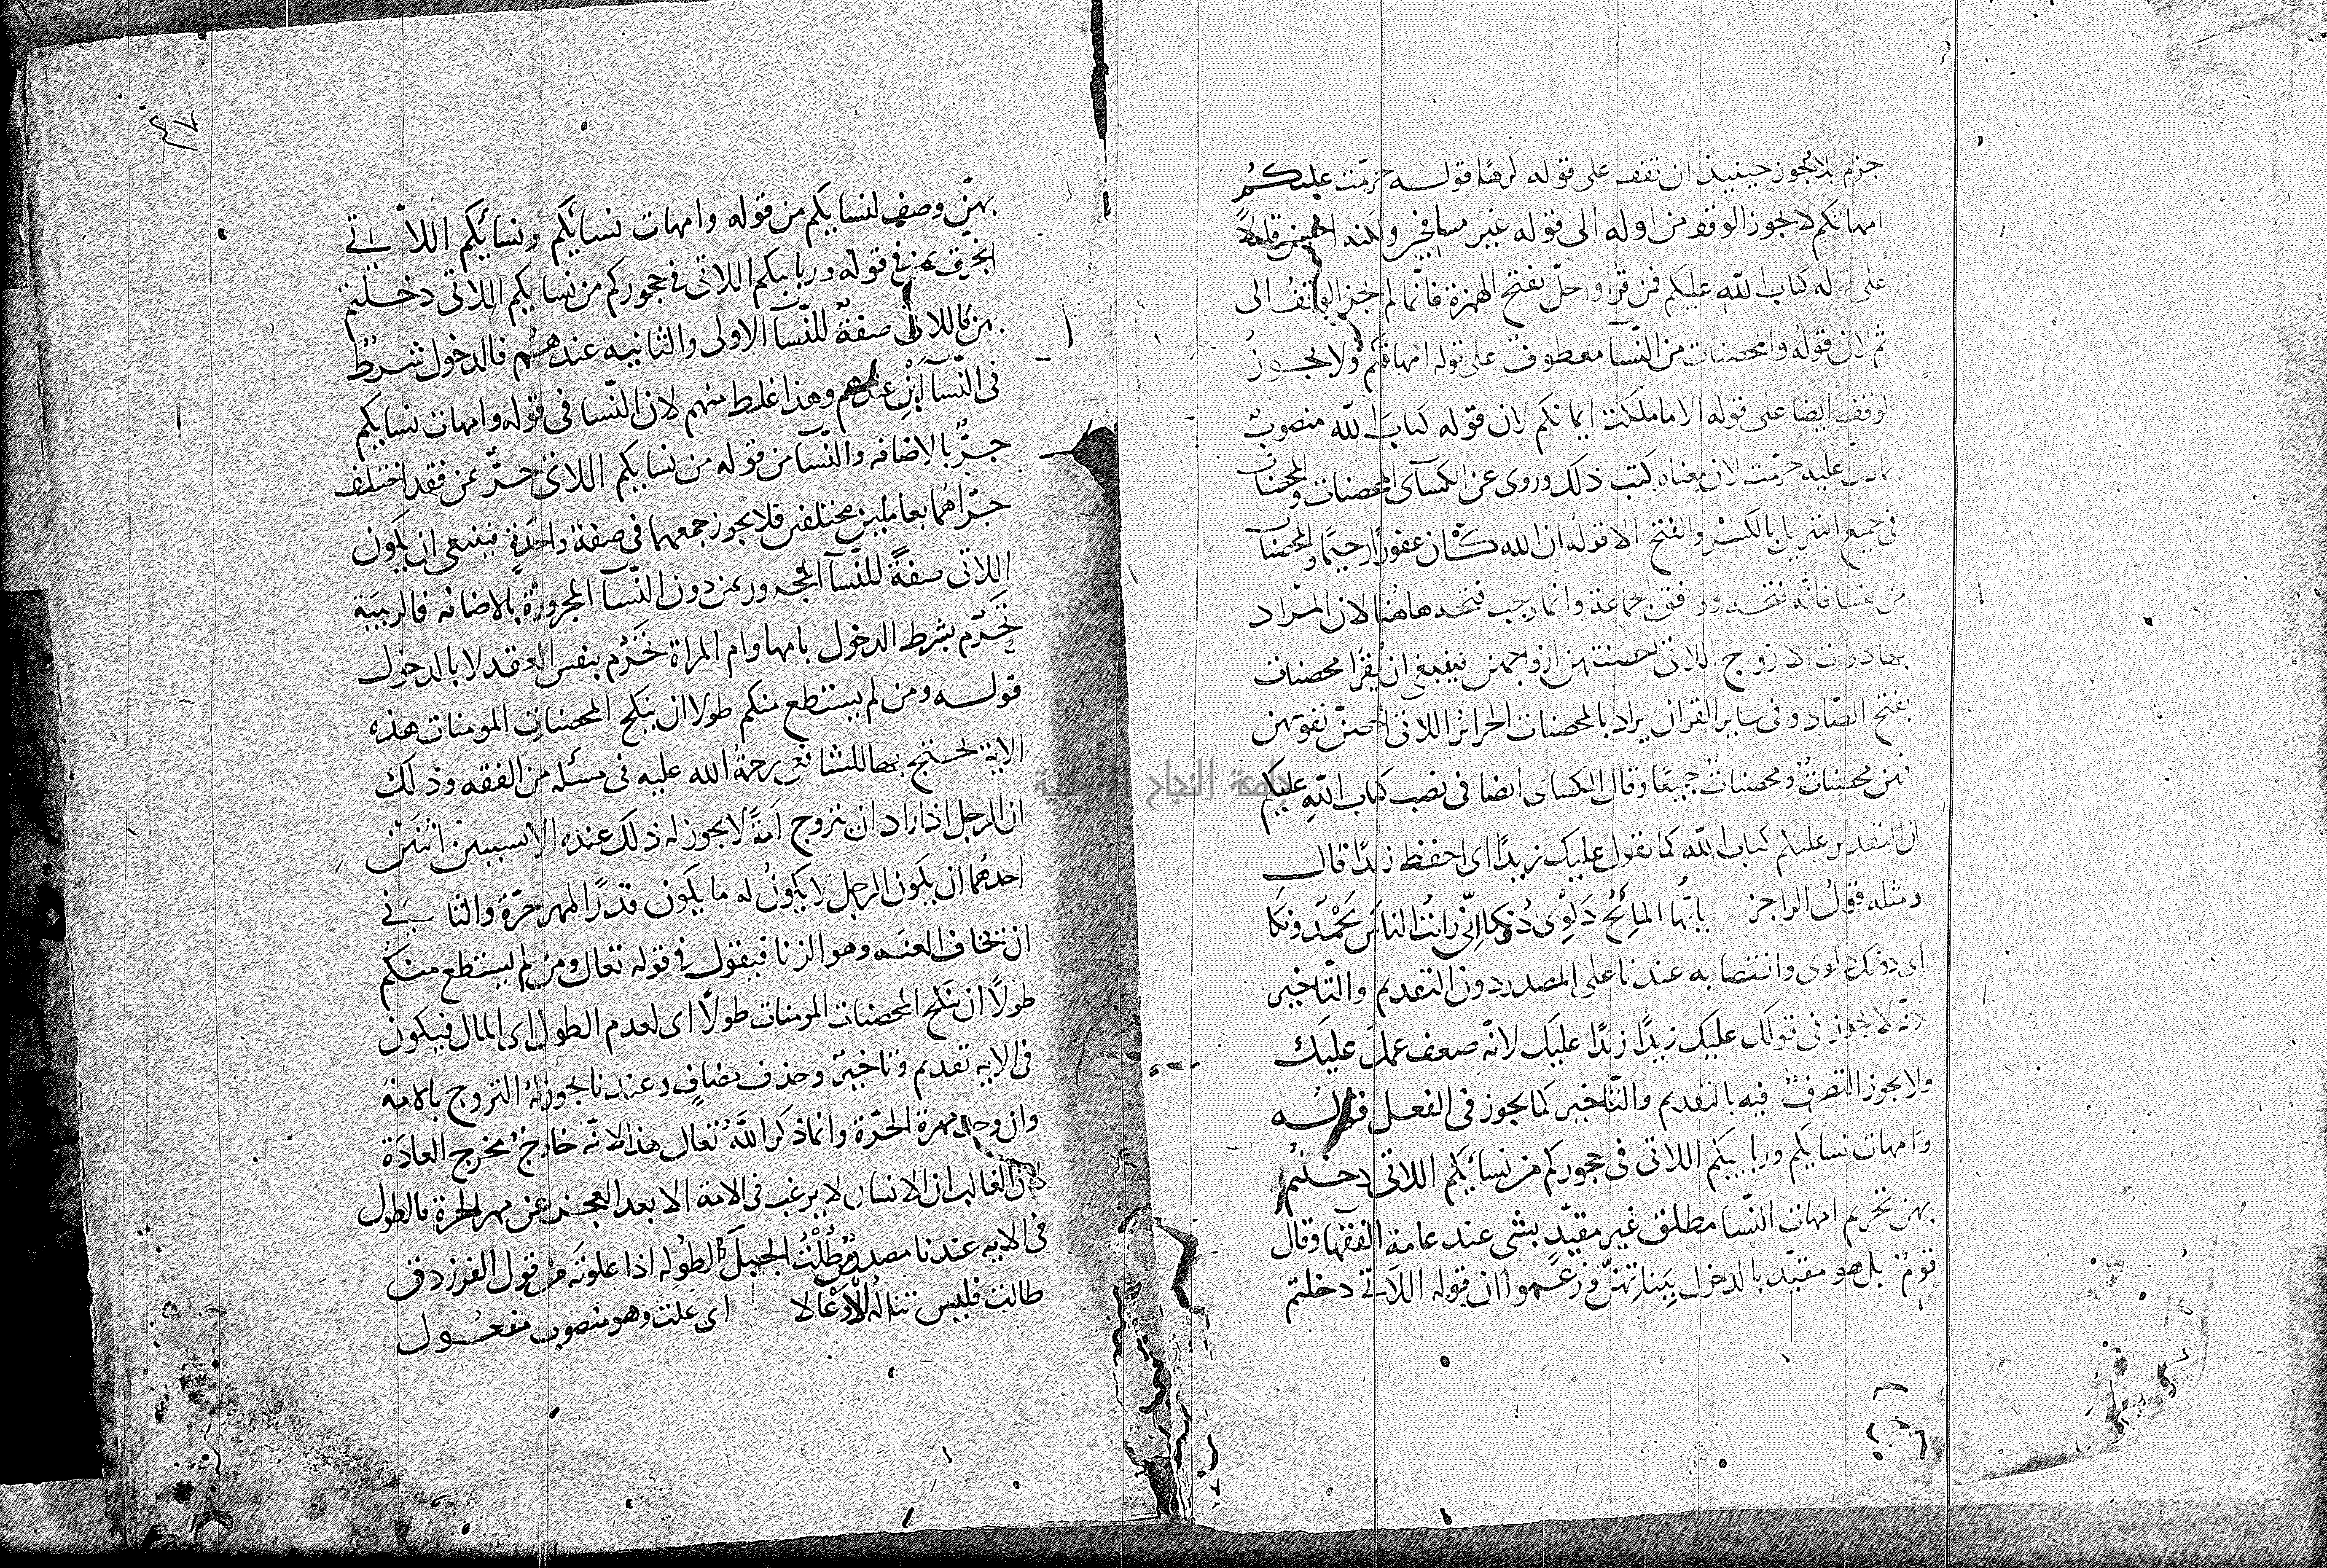 جزم بلا يجوز حينيذ ان تقف على قوله كرها قوله حرمت عليكم
امهاتكم لا يجوز الوقف من اوله الى قوله غير مسافحين ولكنه
على قوله كتاب الله عليكم فمن قرا واحلّ بفتح الهمزة فانّما لم يجز الوقف الى
ثم لان قوله والمحصنات من النّسآ معطوف على قوله امهاتكم ولا يجوز
الوقف ايضا على قوله الا ما ملكت ايمانكم لان قوله كتاب الله منصوب
بما دلّ عليه حرّمت لان معناه كتب ذلك وروى عن الكسآى المحصنات والمحصنات
فى جميع التنزيل بالكسْر والفتح الا قوله ان الله كان غفورًا رحيمًا والمحصنات
من النسا فانه فتحه ووافق الجماعة وانما وجب فتحه هاهُنا لان المراد
بها ذوات الازوج اللاتى احصنتهن ازواجهن فينبغى ان يقرا محصنات
بفتح الصّاد وفى ساير القران يراد بالمحصنات الحرائر اللاتى احصنّ نفوسهن
فهن محصِنات ومحصَنات جميعًا وقال الكساى ايضا فى نصب كتاب الله عليكم
ان التقدير عليكم كتاب الله كما تقول عليك زيدًا اى احفظ زيدًا قال
ومثله قول الراجز يا أيّها المائِحُ دَلْوِى دُونكا إنّى رأيتُ الناسَ يَحْمَدونكا
اى دونك دلوى وانتصابه عندنا على المصدر دون التقديم والتّاخير
لانّه لا يجوز فى قولك عليك زيدًا زيدًا عليك لانّه ضعف عمل عليك
ولا يجوز التصرفُ فيه بالتقديم والتّاخير كما يجوز فى الفعل قوله
وامهات نسايكم وربايبكم اللاتى فى حجوركم من نسائكم اللاتى دخلتم
بهن تحريم امهات النّسا مطلق غير مقيّدٍ بشى عند عامة الفقها وقال
قومٌ بل هو مقيّد بالدخول ببناتِهنّ وزعموا ان قوله اللاتى دخلتم
٤٧
بهنّ وصف لنسايكم من قوله وامهات نسائكم ونسائكم اللاّتي
انجرّ بمن فى قوله وربايبكم اللاتى فى حجوركم من نسايكم اللاتى دخلتم
بهن فاللاتى صفةٌ للنّسآ الاولى والثانيه عندهم فالدخول شرطٌ
فى النّسآ عندهم وهذا غلط منهم لان النّسا فى قوله وامهات نسايكم
جرٌّ بالاضافه والنّسآ من قوله من نسايكم اللاتى جرٌّ بمن فقد اختلف
جرّاهُما بعاملين مختلفين فلا يجوز جمعهما فى صفة واحدةٍ فينبغى ان يكون
اللاتى صفةً للنّسآ المجرور بمن دون النّسآ المجرورة بالاضافه فالربيبة
تحرّم بشرط الدخول بامها وام المراة تحرُم بنفس العقد لا بالدخول
قوله ومن لم يستطع منكم طولا ان ينكح المحصنات المومنات هذه
الاية يحتج بها للشافعى رحمةُ الله عليه فى مسئله من الفقه وذلك
ان الرجل اذا اراد ان يتزوج اَمَةً لا يجوز له ذلك عنده الا بسببين اثنين
احدهُما ان يكون الرجل لا يكونُ له ما يكون قدرًا لمهر حرّة والثاني
ان يخاف العنت وهو الزنا فيقول فى قوله تعالى ومن لم يستطع منكم
طولًا ان ينكح المحصنات المومنات طولًا اى لعدم الطول اى المال فيكون
فى الايه تقديم وتاخيرٌ وحذف مضافٍ وعندنا يجوز له التزوج بالامة
وان وجد مهرة الحرّة وانما ذكر اللّهُ تعالى هذا لانّه خارجٌ مخرج العادَة
لان الغالب ان الانسان لا يرغب فى الامة الا بعد العجز عن مهر الحرة فالطول
فى الايه عندنا مصدرُ طُلْتُ الجبلَ اطوله اذا علوتَه من قول الفرزدق
طالت فليس تنالُه الأَوْعَالا اى علت وهو منصوب مفعول
جامعة النجاح الوطنية